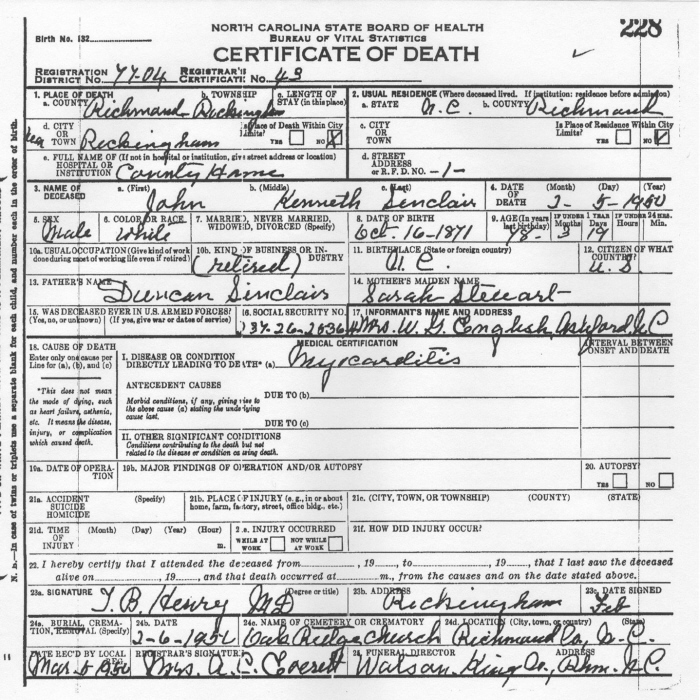 NORTH CAROLINA STATE BOARD OF HEALTH
BUREAU OF VITAL STATISTICS
228
Birth No. 132
CERTIFICATE OF DEATH
REGISTRATION DISTRICT NO. 77-04 REGISTRAR'S CERTIFICATE NO. 43
1. PLACE OF DEATH
a. COUNTY Richmond
b. TOWNSHIP Rockingham
c. LENGTH OF STAY (in this place)
2. USUAL RESIDENCE (Where deceased lived. If institution: residence before admission)
a. STATE N.C. b. COUNTY Richmond
d. CITY OR TOWN Rockingham
Is Place of Death Within City Limits? YES NO X
c. CITY OR TOWN
Is Place of Residence Within City Limits? YES NO X
e. FULL NAME OF (If not in hospital or institution, give street address or location) HOSPITAL OR INSTITUTION County Home
d. STREET ADDRESS or R.F.D. NO. -1-
3. NAME OF DECEASED
a. (First) John
b. (Middle) Kenneth
c. (Last) Sinclair
4. DATE OF DEATH (Month) (Day) (Year) 2-5-1950
5. SEX Male
6. COLOR OR RACE White
7. MARRIED, NEVER MARRIED, WIDOWED, DIVORCED (Specify)
8. DATE OF BIRTH Oct. 16-1871
9. AGE (In years last birthday) 78 IF UNDER 1 YEAR Months 3 Days 19 IF UNDER 24 HRS. Hours Min.
10a. USUAL OCCUPATION (Give kind of work done during most of working life even if retired)
10b. KIND OF BUSINESS OR INDUSTRY (retired)
11. BIRTHPLACE (State or foreign country) N.C.
12. CITIZEN OF WHAT COUNTRY? U.S.
13. FATHER'S NAME Duncan Sinclair
14. MOTHER'S MAIDEN NAME Sarah Stewart
15. WAS DECEASED EVER IN U.S. ARMED FORCES? (Yes, no, or unknown) (If yes, give war or dates of service)
16. SOCIAL SECURITY NO.
17. INFORMANT'S NAME AND ADDRESS Mrs. W. G. English, N.C.
18. CAUSE OF DEATH
Enter only one cause per Line for (a), (b), and (c)
*This does not mean the mode of dying, such as heart failure, asthenia, etc. It means the disease, injury, or complication which caused death.
MEDICAL CERTIFICATION
INTERVAL BETWEEN ONSET AND DEATH
I. DISEASE OR CONDITION DIRECTLY LEADING TO DEATH* (a) Myocarditis
ANTECEDENT CAUSES
Morbid conditions, if any, giving rise to the above cause (a) stating the underlying cause last.
DUE TO (b)
DUE TO (c)
II. OTHER SIGNIFICANT CONDITIONS
Conditions contributing to the death but not related to the disease or condition causing death.
19a. DATE OF OPERATION
19b. MAJOR FINDINGS OF OPERATION AND/OR AUTOPSY
20. AUTOPSY? YES NO
21a. ACCIDENT SUICIDE HOMICIDE (Specify)
21b. PLACE OF INJURY (e.g., in or about home, farm, factory, street, office bldg., etc.)
21c. (CITY, TOWN, OR TOWNSHIP) (COUNTY) (STATE)
21d. TIME OF INJURY (Month) (Day) (Year) (Hour) m.
21e. INJURY OCCURRED WHILE AT WORK NOT WHILE AT WORK
21f. HOW DID INJURY OCCUR?
22. I hereby certify that I attended the deceased from , 19 , to , 19 , that I last saw the deceased
alive on , 19 , and that death occurred at m., from the causes and on the date stated above.
23a. SIGNATURE T. B. Henry MD (Degree or title)
23b. ADDRESS Rockingham
23c. DATE SIGNED Feb
24a. BURIAL, CREMATION, REMOVAL (Specify)
24b. DATE 2-6-1950
24c. NAME OF CEMETERY OR CREMATORY Oak Ridge Church
24d. LOCATION (City, town, or county) (State) Richmond Co., N.C.
DATE REC'D BY LOCAL REG. Mar 5 1950
REGISTRAR'S SIGNATURE Mrs. A. C. Everett
25. FUNERAL DIRECTOR ADDRESS Watson King Co., N.C.
N. B.—In case of twins or triplets use a separate blank for each child, and number each in the order of birth.
11